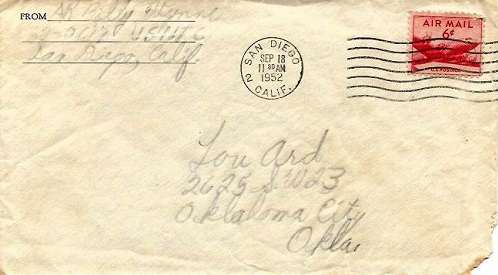 FROM
U S M C
San Diego, Calif
SAN DIEGO
SEP 18
11 30 AM
1952
2
CALIF.
AIR MAIL
6¢
U.S. POSTAGE
Lou Ard
2625 S.W 23
Oklahoma City
Okla.